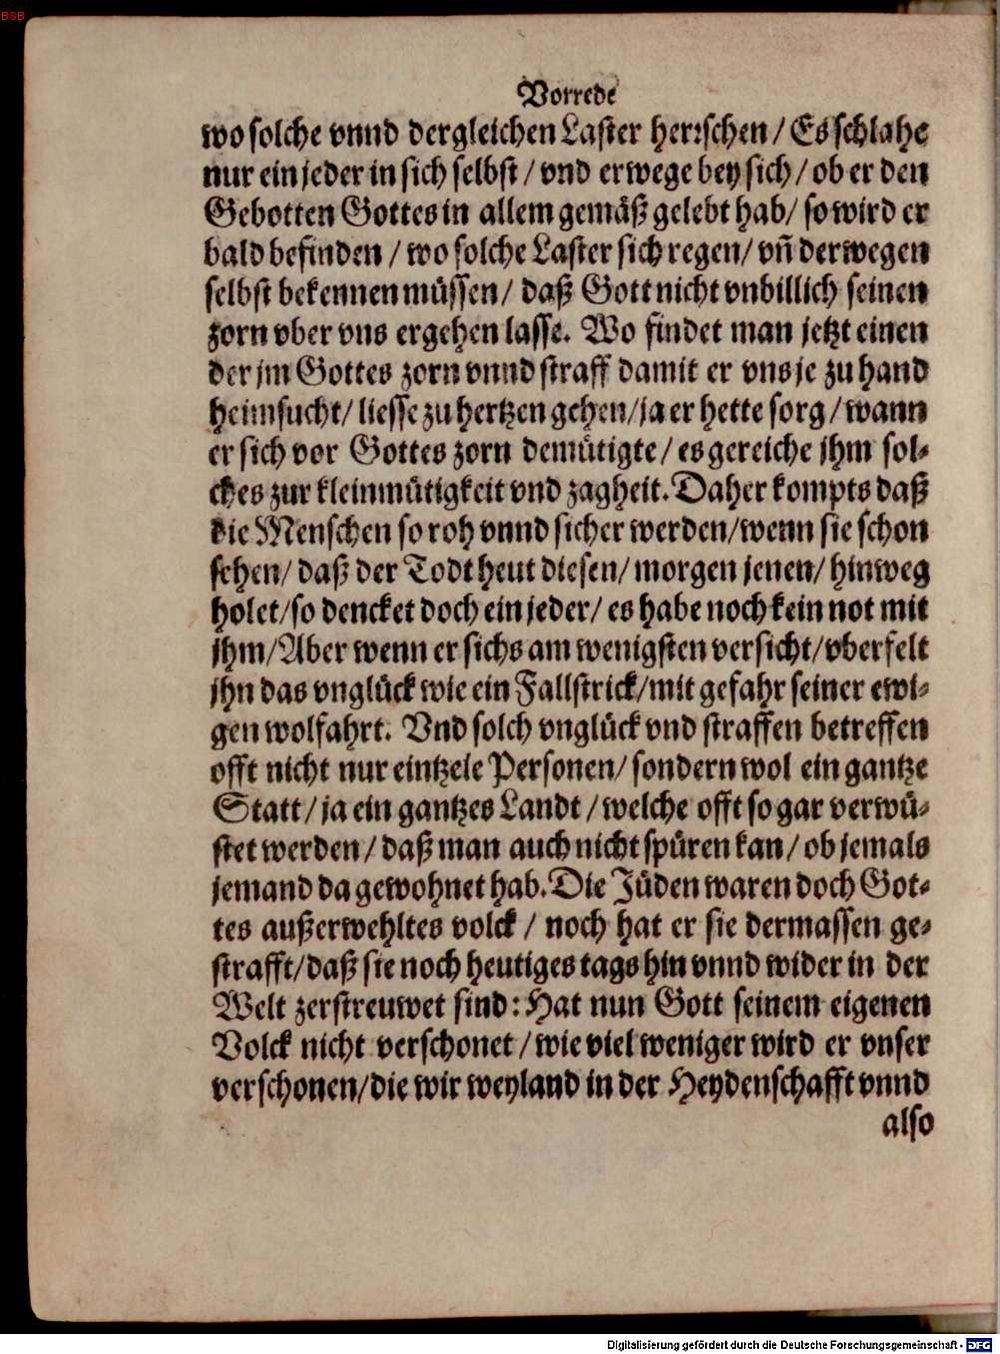 BSB
Vorrede
wo solche vnnd dergleichen Laster herꝛschen / Es schlahe
nur ein jeder in sich selbst / vnd erwege bey sich / ob er den
Gebotten Gottes in allem gemäß gelebt hab / so wird er
bald befinden / wo solche Laster sich regen / vñ derwegen
selbst bekennen müssen / daß Gott nicht vnbillich seinen
zorn vber vns ergehen lasse. Wo findet man jetzt einen
der jm Gottes zorn vnnd straff damit er vns je zu hand
heimsucht / liesse zu hertzen gehen / ja er hette sorg / wann
er sich vor Gottes zorn demütigte / es gereiche jhm sol-
ches zur kleinmütigkeit vnd zagheit. Daher kompts daß
die Menschen so roh vnnd sicher werden / wenn sie schon
sehen / daß der Todt heut diesen / morgen jenen / hinweg
holet / so dencket doch ein jeder / es habe noch kein not mit
jhm / Aber wenn er sichs am wenigsten versicht / vberfelt
jhn das vnglück wie ein Fallstrick / mit gefahr seiner ewi-
gen wolfahrt. Vnd solch vnglück vnd straffen betreffen
offt nicht nur eintzele Personen / sondern wol ein gantze
Statt / ja ein gantzes Landt / welche offt so gar verwü-
stet werden / daß man auch nicht spüren kan / ob jemals
jemand da gewohnet hab. Die Jüden waren doch Got-
tes außerwehltes volck / noch hat er sie dermassen ge-
strafft / daß sie noch heutiges tags hin vnnd wider in der
Welt zerstreuwet sind : Hat nun Gott seinem eigenen
Volck nicht verschonet / wie viel weniger wird er vnser
verschonen / die wir weyland in der Heydenschafft vnnd
also
Digitalisierung gefördert durch die Deutsche Forschungsgemeinschaft - DFG